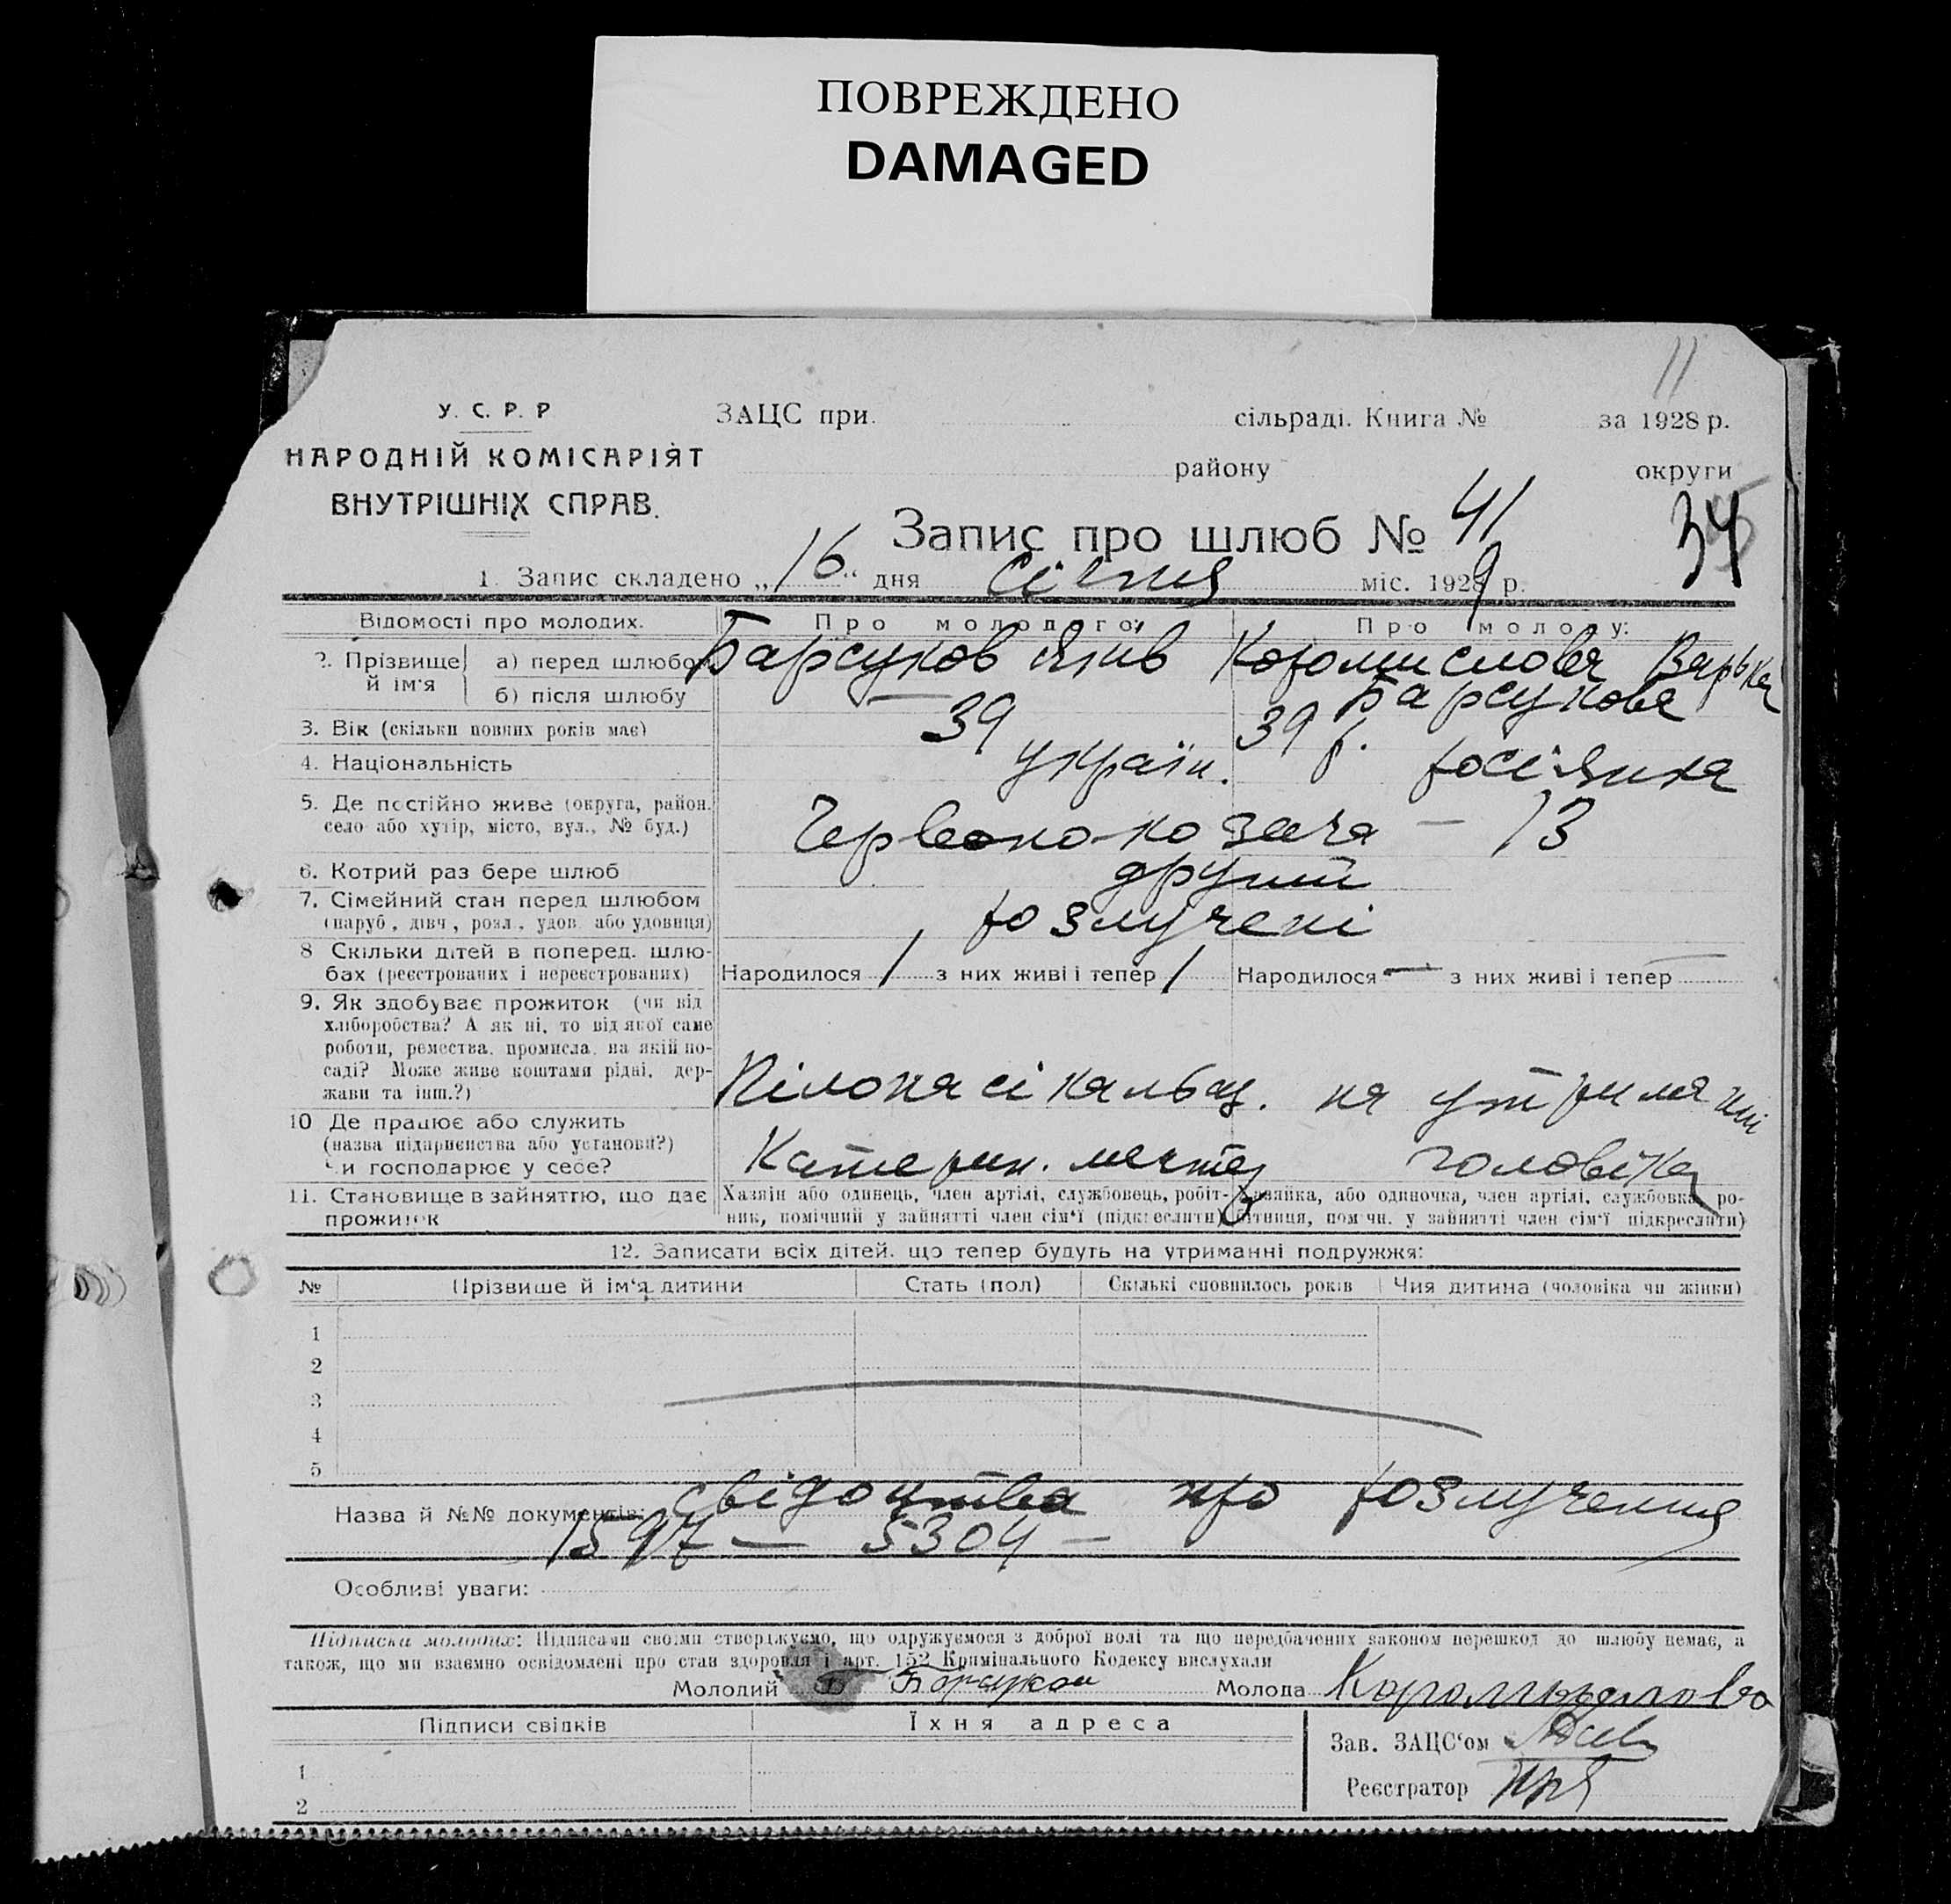 ПОВРЕЖДЕНО
DAMAGED
11
У. С. Р. Р
НАРОДНІЙ КОМІСАРІЯТ
ВНУТРІШНІХ СПРАВ.
ЗАЦС при. сільраді. Книга № за 1928 р.
району округи
Запис про шлюб № 41
34
1. Запис складено „16“ дня січня міс. 1929 р.
Відомості про молодих. Про молодого: Про молоду:
2. Прізвище й ім'я
а) перед шлюбом Барсуков Яків Коромислова Варька
б) після шлюбу — Барсукова
3. Вік (скільки повних років має) 39 39 р.
4. Національність україн. росіянка
5. Де постійно живе (округа, район, село або хутір, місто, вул., № буд.) Червонокозача — 13
6. Котрий раз бере шлюб другий
7. Сімейний стан перед шлюбом (паруб., дівч., розл., удов. або удовиця) розлучені
8 Скільки дітей в поперед. шлюбах (реєстрованих і нереєстрованих) Народилося 1 з них живі і тепер 1 Народилося — з них живі і тепер —
9. Як здобуває прожиток (чи від
хліборобства? А як ні, то від якої саме
роботи, ремества, промисла, на якій по-
саді? Може живе коштами рідні, дер-
жави та інш.?)
на утриманні
10 Де працює або служить
(назва підприємства або установи?)
Чи господарює у себе?
Катерин. чоловіка
11. Становище в зайняттю, що дає
прожиток
Хазяїн або одинець, член артілі, службовець, робіт-
ник, помічний у зайнятті член сім'ї (підкреслити)
Хазяйка, або одиночка, член артілі, службовка, ро-
бітниця, помічн. у зайнятті член сім'ї підкреслити)
12. Записати всіх дітей, що тепер будуть на утриманні подружжя:
№ Прізвище й ім'я дитини Стать (пол) Скількі сповнилось років Чия дитина (чоловіка чи жінки)
1
2
3
4
5
Назва й №№ документів: свідоцтва про розлучення
1597 — 5304 —
Особливі уваги:
Підписка молодих: Підписами своїми стверджуємо, що одружуємося з доброї волі та що передбачених законом перешкод до шлюбу немає, а
також, що ми взаємно освідомлені про стан здоровля і арт. 152 Кримінального Кодексу вислухали
Молодий Барсуков Молода Коромыслова
Підписи свідків Їхня адреса
Зав. ЗАЦС'ом
1
Реєстратор
2